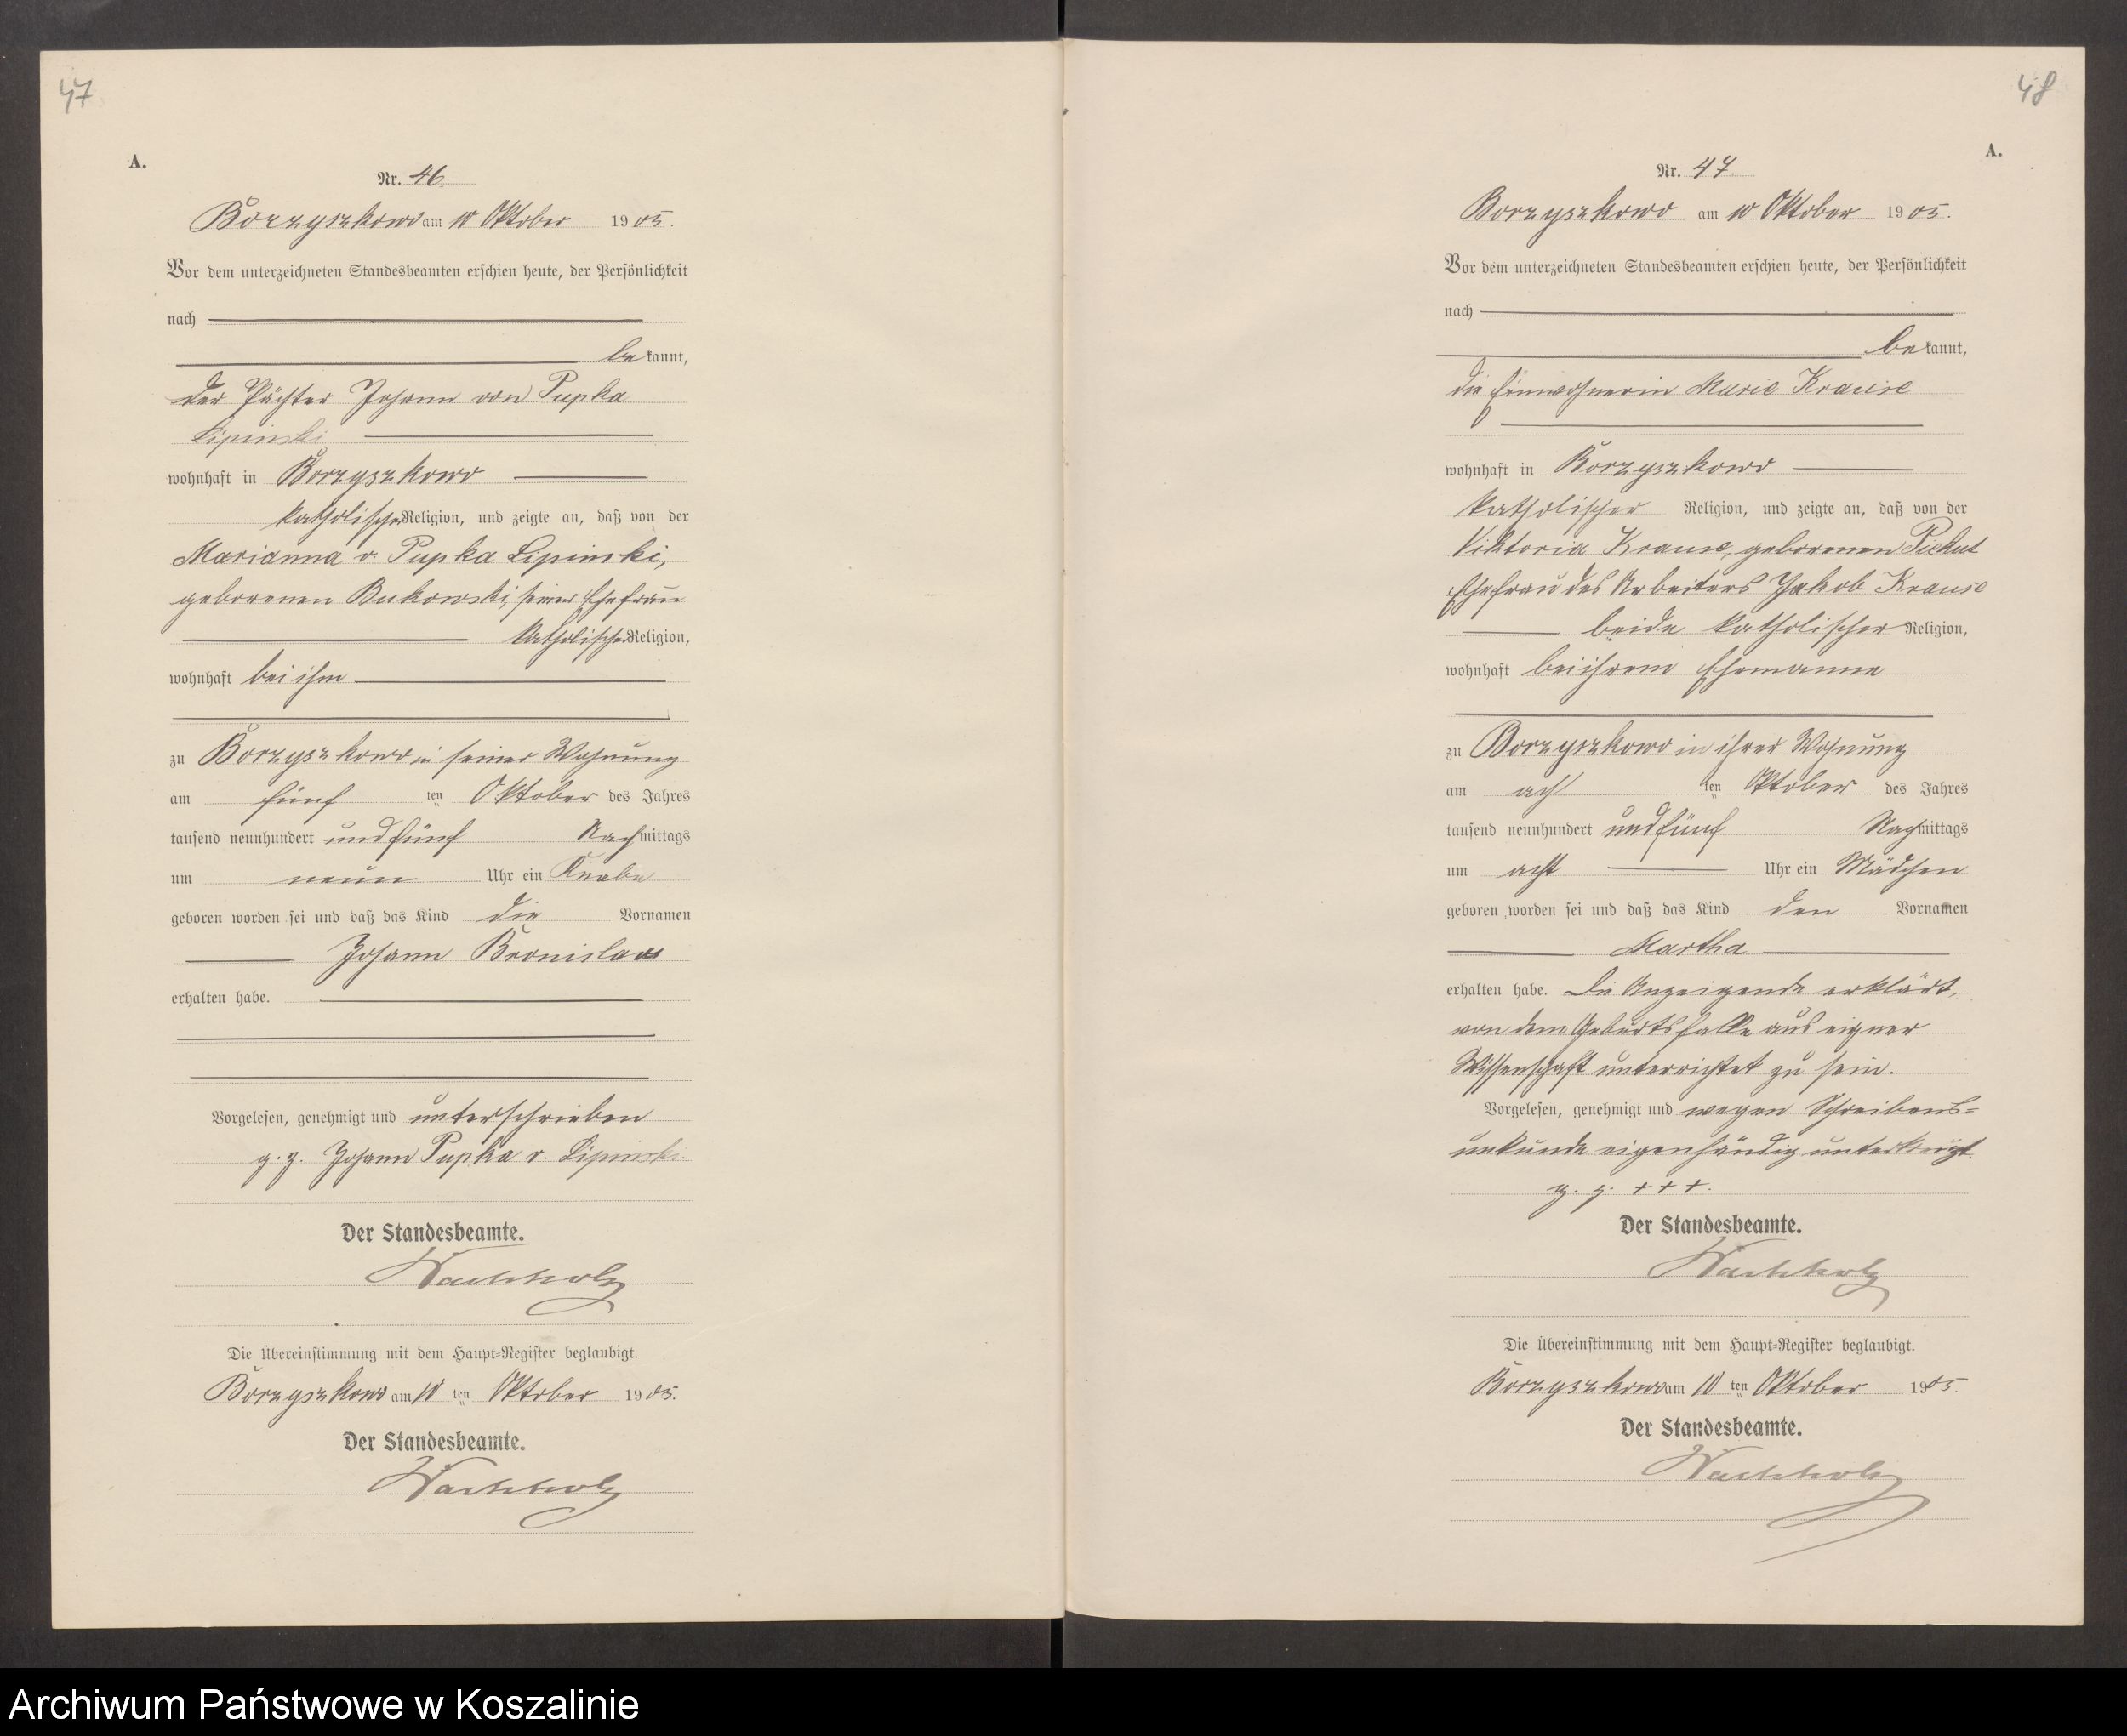 47
A.
Nr. 46.
Borzyszkowo am 10 Oktober 1905.
Vor dem unterzeichneten Standesbeamten erschien heute, der Persönlichkeit
nach
bekannt,
der Pächter Johann von Pupka
Lipinski
wohnhaft in Borzyszkowo
katholischer Religion, und zeigte an, daß von der
Marianna v Pupka Lipinski,
geborenen Bukowski, seiner Ehefrau
katholischer Religion,
wohnhaft bei ihm
zu Borzyszkowo in seiner Wohnung
am fünf ten Oktober des Jahres
tausend neunhundert und fünf Nachmittags
um neun Uhr ein Knabe
geboren worden sei und daß das Kind die Vornamen
Johann Bronislaus
erhalten habe.
Vorgelesen, genehmigt und unterschrieben
g. z. Johann Pupka v. Lipinski.
Der Standesbeamte.
Wachholz
Die Übereinstimmung mit dem Haupt-Register beglaubigt.
Borzyszkowo am 10 ten Oktober 1905.
Der Standesbeamte.
Wachholz
48
A.
Nr. 47.
Borzyszkowo am 10 Oktober 1905.
Vor dem unterzeichneten Standesbeamten erschien heute, der Persönlichkeit
nach
bekannt,
die Einwohnerin Marie Krause
wohnhaft in Borzyszkowo
katholischer Religion, und zeigte an, daß von der
Viktoria Krause, geborenen
Ehefrau des Arbeiters Jakob Krause
beide katholischer Religion,
wohnhaft bei ihrem Ehemanne
zu Borzyszkowo in ihrer Wohnung
am ach ten Oktober des Jahres
tausend neunhundert und fünf Nachmittags
um acht Uhr ein Mädchen
geboren worden sei und daß das Kind den Vornamen
Martha
erhalten habe. Die Anzeigende erklärt,
von dem Geburtsfalle aus eigner
Wissenschaft unterrichtet zu sein.
Vorgelesen, genehmigt und wegen Schreibens-
unkunde eigenhändig unterkreuzt.
g. z. + + +.
Der Standesbeamte.
Wachholz
Die Übereinstimmung mit dem Haupt-Register beglaubigt.
Borzyszkowo am 10 ten Oktober 1905.
Der Standesbeamte.
Wachholz
Archiwum Państwowe w Koszalinie